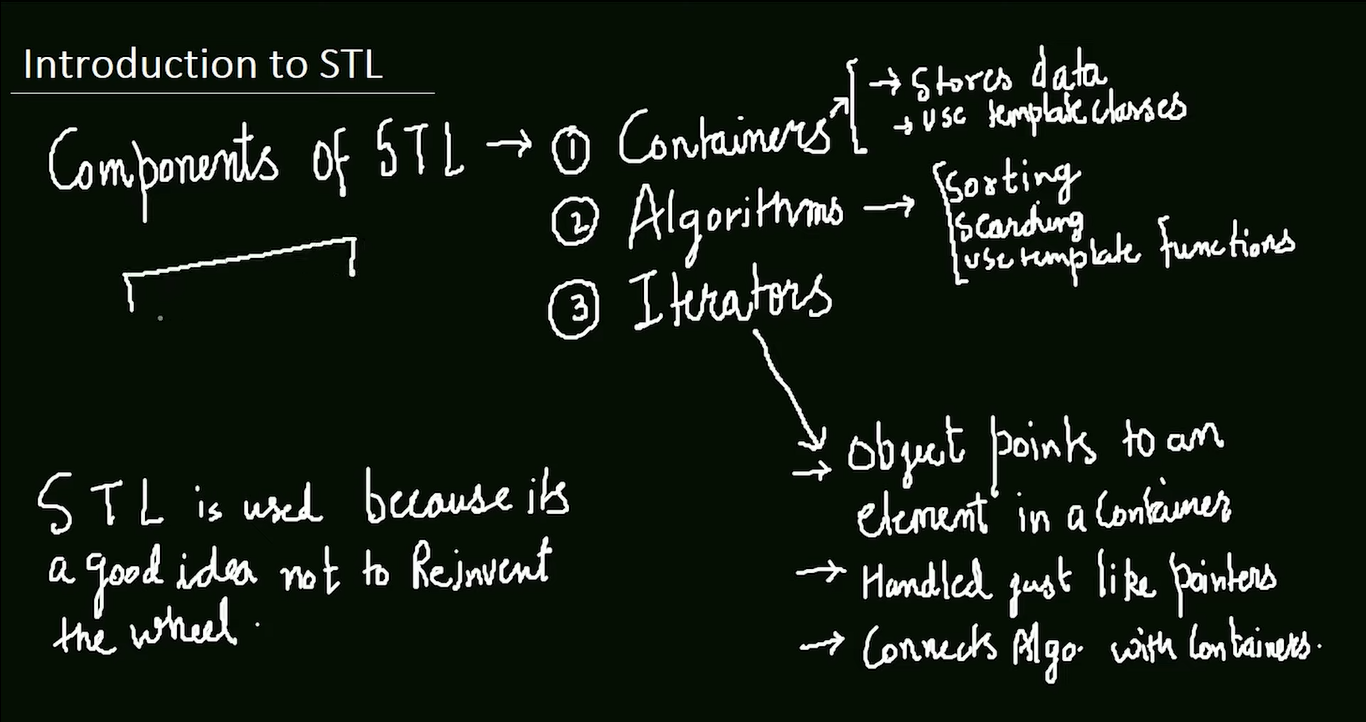 Introduction to STL
Components of STL → ① Containers
→ Stores data
→ use template classes
② Algorithms →
Sorting
Searching
use template functions
③ Iterators
→ Object points to an
element in a Container
→ Handled just like pointers
→ Connects Algo. with Containers.
STL is used because its
a good idea not to Reinvent
the wheel.